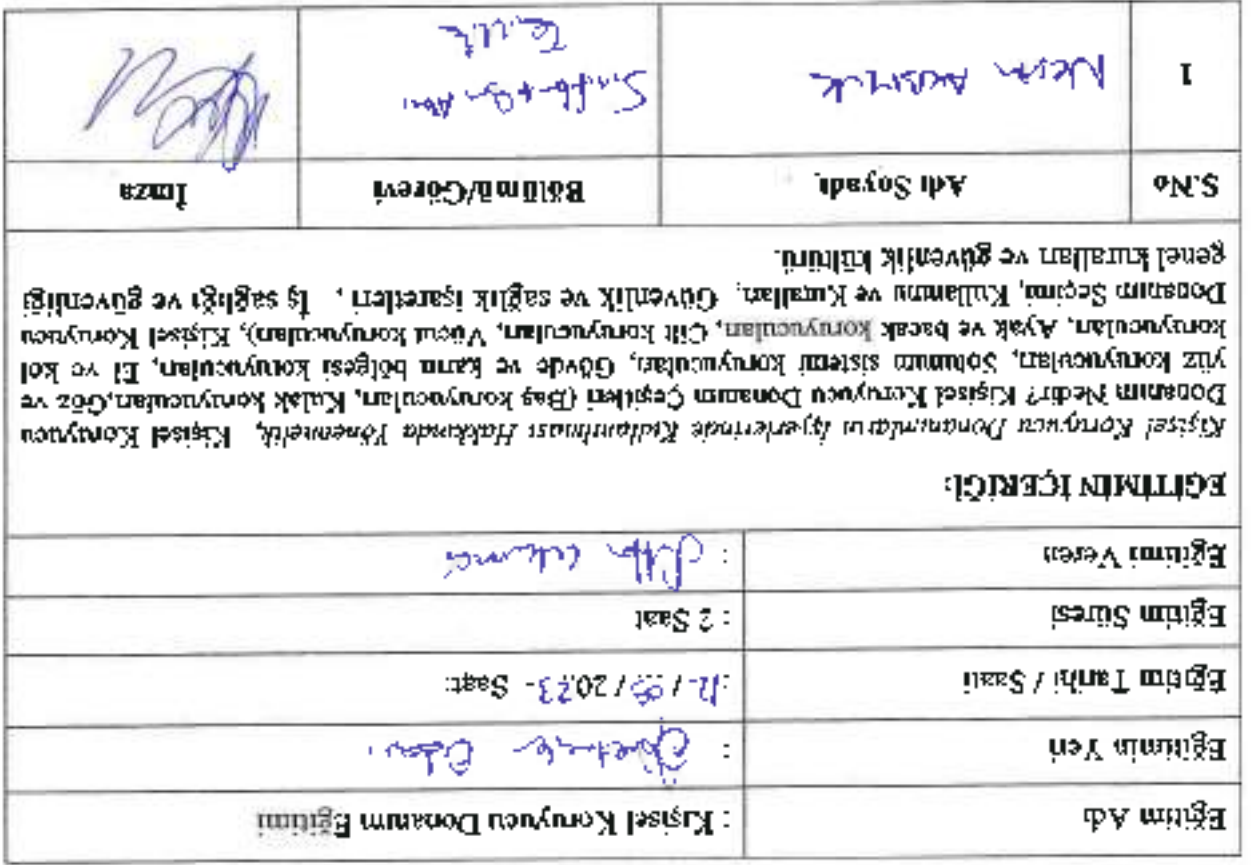 Eğitim Adı : Kişisel Koruyucu Donanım Eğitimi
Eğitimin Yeri : Öğretmenler Odası
Eğitim Tarihi / Saati : 12 / 09 / 2023 - Saat:
Eğitim Süresi : 2 Saat
Eğitimi Veren :
EĞİTİMİN İÇERİĞİ:
Kişisel Koruyucu Donanımların İşyerlerinde Kullanılması Hakkında Yönetmelik, Kişisel Koruyucu
Donanım Nedir? Kişisel Koruyucu Donanım Çeşitleri (Baş koruyucuları, Kulak koruyucuları,Göz ve
yüz koruyucuları, Solunum sistemi koruyucuları, Gövde ve karın bölgesi koruyucuları, El ve kol
koruyucuları, Ayak ve bacak koruyucuları, Cilt koruyucuları, Vücut koruyucuları), Kişisel Koruyucu
Donanım Seçimi, Kullanımı ve Kuralları, Güvenlik ve sağlık işaretleri , İş sağlığı ve güvenliği
genel kuralları ve güvenlik kültürü.
S.No Adı Soyadı Bölümü/Görevi İmza
1